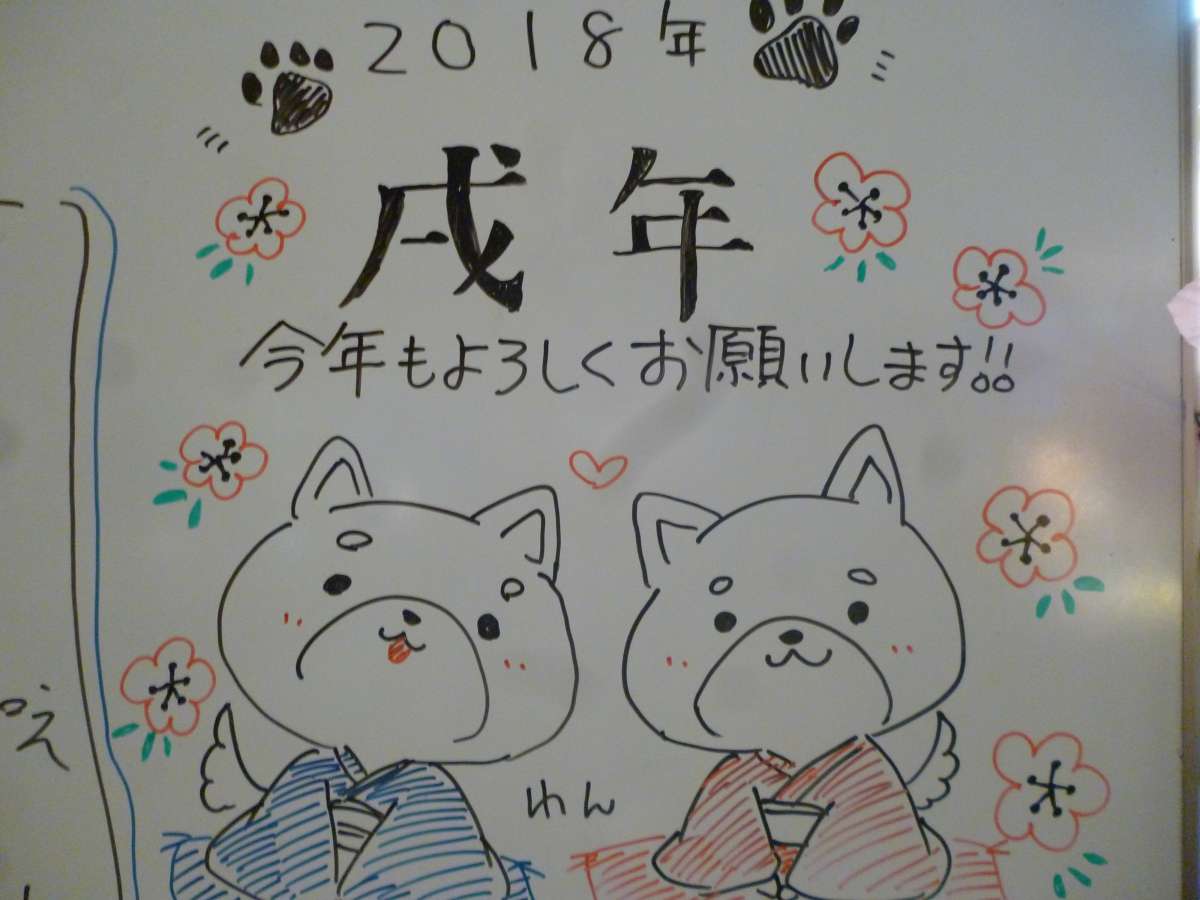 2018年
戌年
今年もよろしくお願いします!!
わん
え